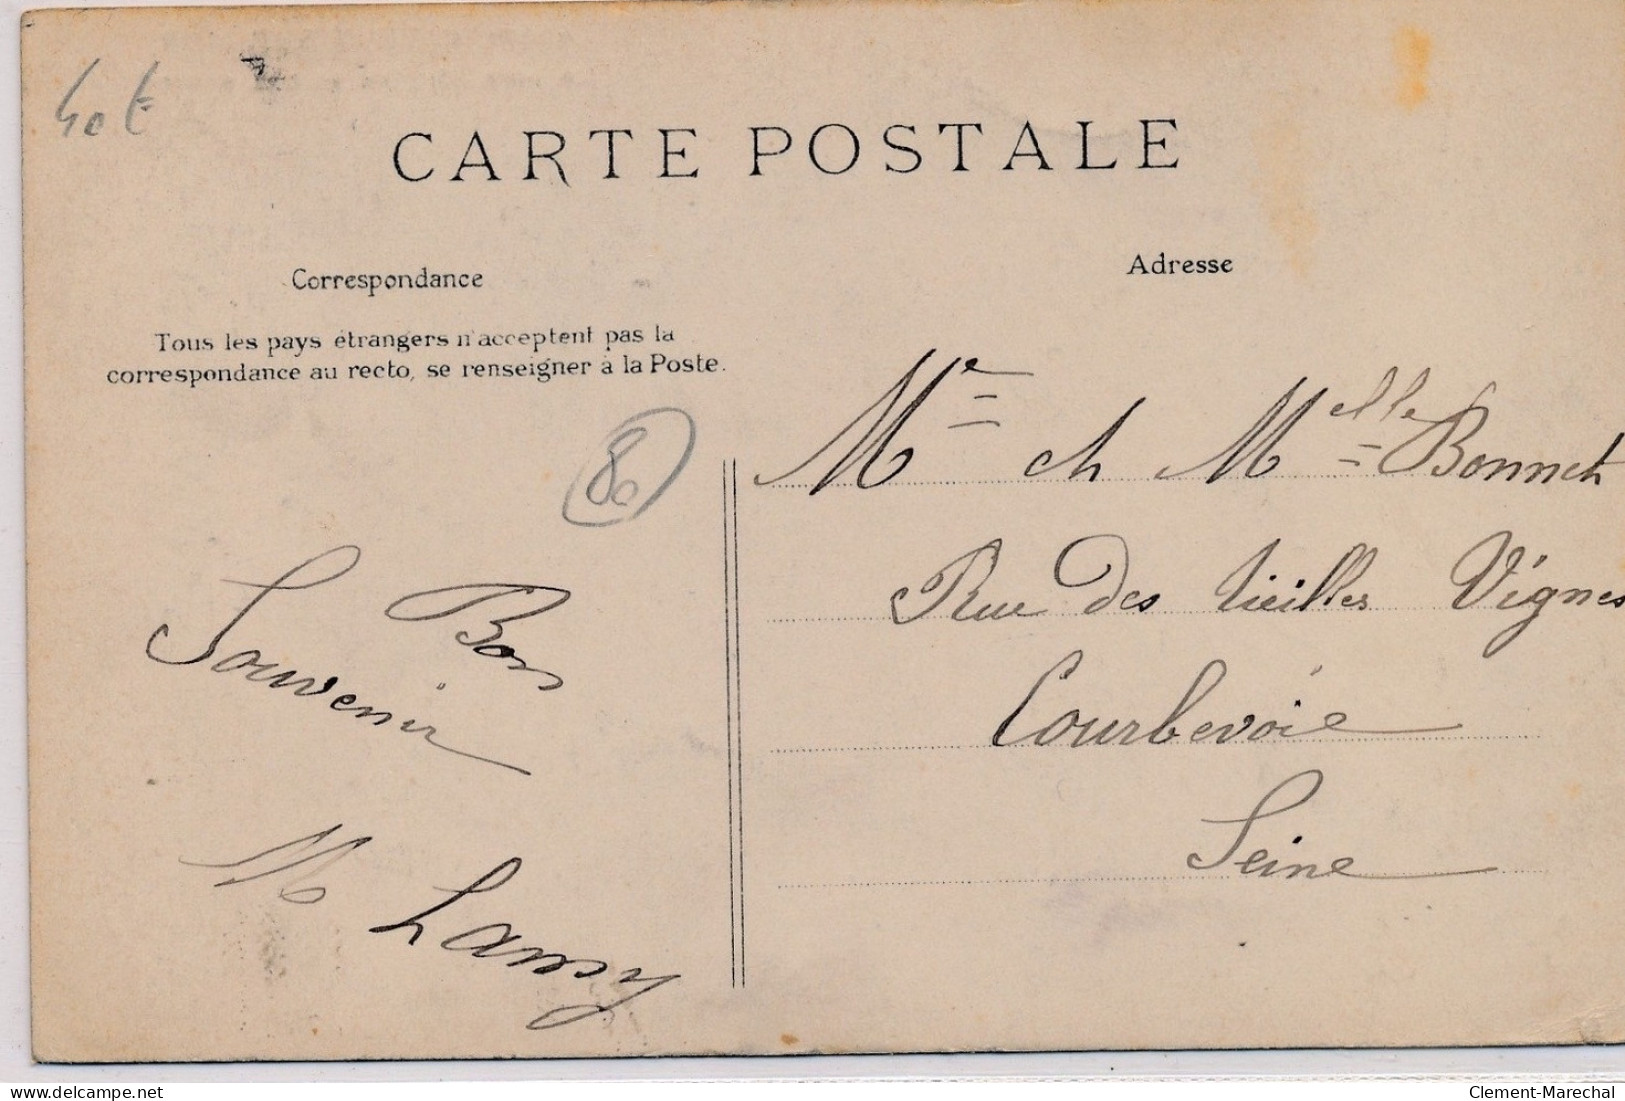 40€
CARTE POSTALE
Correspondance
Tous les pays étrangers n'acceptent pas la
correspondance au recto, se renseigner à la Poste.
80
Bon
Souvenir
M
Adresse
Me et Melle Bonnet
Rue des Vieilles Vignes
Courbevoie
Seine
delcampe.net
Clement-Marechal